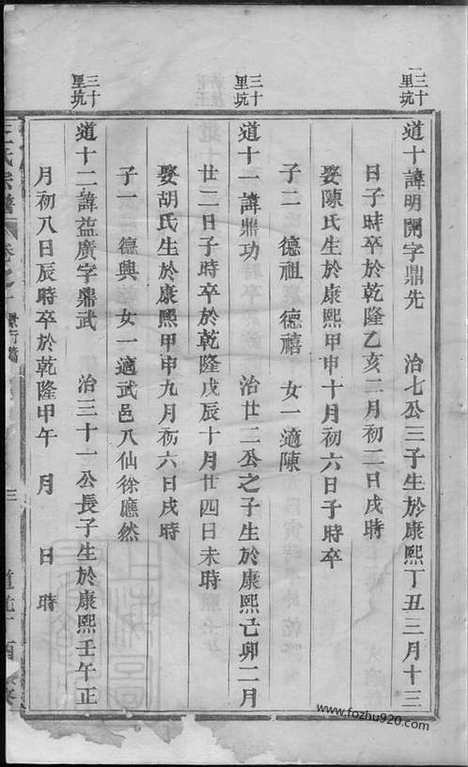 三十里坑
道十諱明開字鼎先 治七公三子生於康熙丁丑三月十三
日子時卒於乾隆乙亥二月初二日戌時
娶陳氏生於康熙甲申十月初六日子時卒
子二 德祖 德禧 女一適陳
三十里坑
道十一諱鼎功 治廿二公之子生於康熙己卯二月
廿二日子時卒於乾隆戊辰十月廿四日未時
娶胡氏生於康熙甲申九月初六日戌時
子一 德興 女一適武邑八仙徐應然
三十里坑
道十二諱益廣字鼎武 治三十一公長子生於康熙壬午正
月初八日辰時卒於乾隆甲午 月 日 時
王氏宗譜 卷之
三
www.fozhu920.com